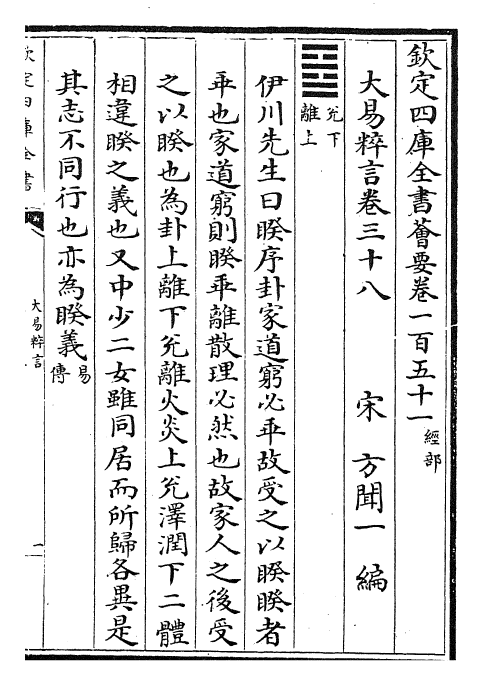 欽定四庫全書薈要卷一百五十一 經部
大易粹言卷三十八 宋 方聞一 編
䷥ 兌下
離上
伊川先生曰睽序卦家道窮必乖故受之以睽睽者
乖也家道窮則睽乖離散理必然也故家人之後受
之以睽也為卦上離下兌離火炎上兌澤潤下二體
相違睽之義也又中少二女雖同居而所歸各異是
其志不同行也亦為睽義 易
傳
欽定四庫全書
大易粹言